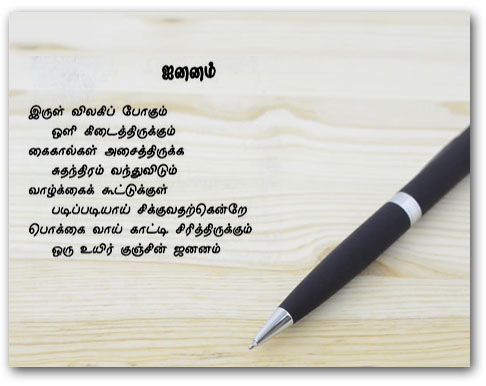 ஜனனம்
இருள் விலகிப் போகும்
ஒளி கிடைத்திருக்கும்
கைகால்கள் அசைத்திருக்க
சுதந்திரம் வந்துவிடும்
வாழ்க்கைக் கூட்டுக்குள்
படிப்படியாய் சிக்குவதற்கென்றே
பொக்கை வாய் காட்டி சிரித்திருக்கும்
ஒரு உயிர் குஞ்சின் ஜனனம்